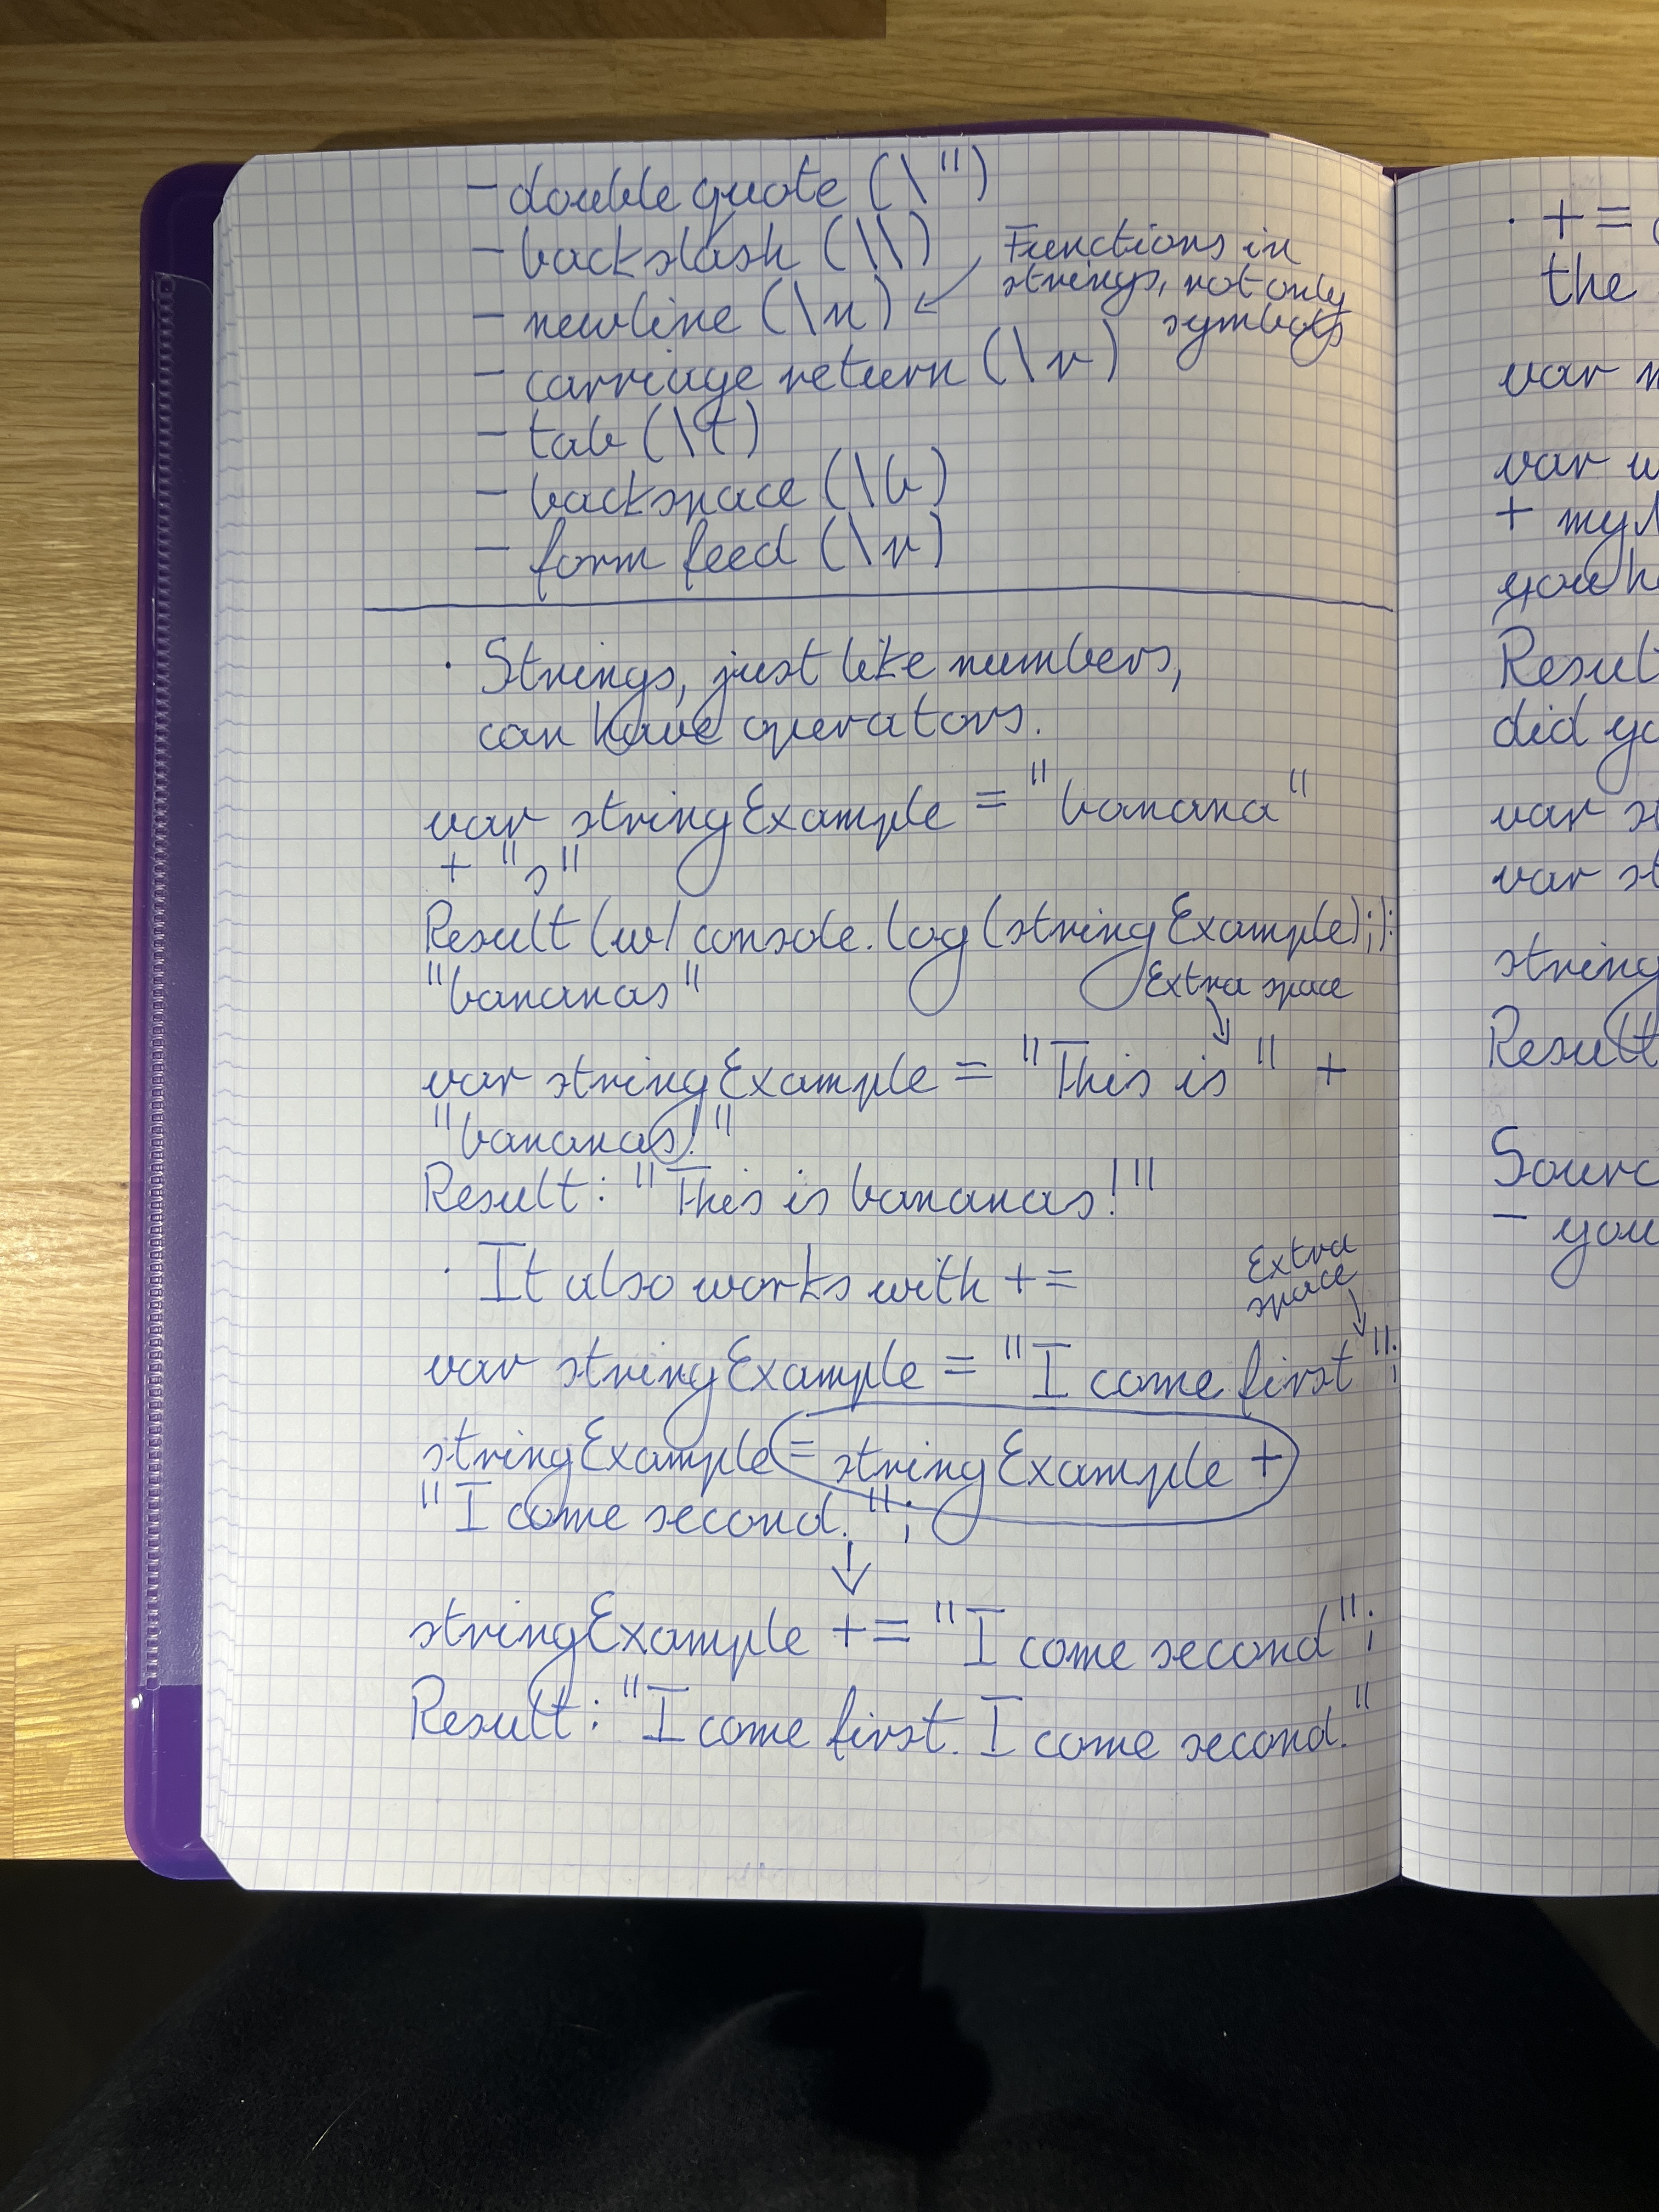 - double quote (\")
- backslash (\\)
Functions in
strings, not only
symbols
- newline (\n)
- carriage return (\r)
- tab (\t)
- backspace (\b)
- form feed (\r)
· Strings, just like numbers,
can have operators.
var stringExample = "banana"
+ "s"
Result (w/ console.log(stringExample);):
"bananas"
Extra space
var stringExample = "This is " +
"bananas!"
Result: "This is bananas!"
· It also works with +=
Extra
space
var stringExample = "I come first ";
stringExample = stringExample +
"I come second.";
stringExample += "I come second";
Result: "I come first. I come second."
· +=
the
var
var
+ my
you
Result
did
var
var
string
Result
- you